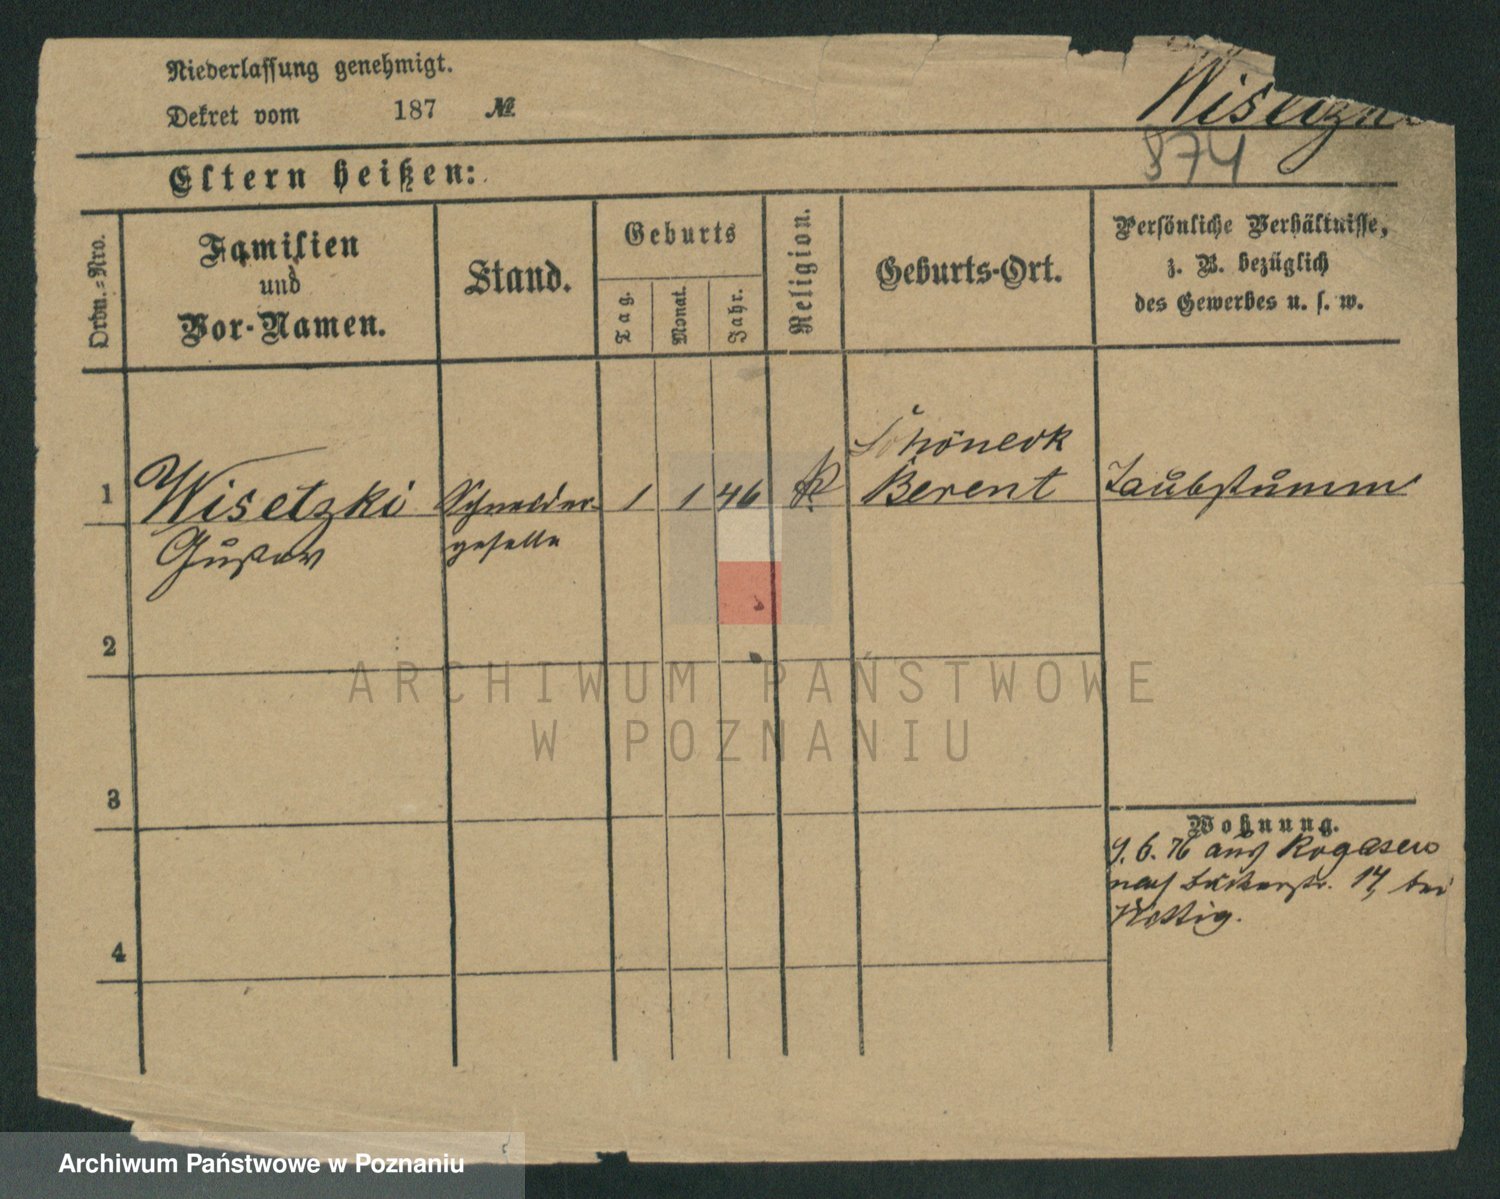 Niederlassung genehmigt.
Dekret vom 187 №
Wisetzki
874
Eltern heißen:
Ordn.-Nro.
Familien
und
Vor-Namen.
Stand.
Geburts
Tag.
Monat.
Jahr.
Religion.
Geburts-Ort.
Persönliche Verhältnisse,
z. B. bezüglich
des Gewerbes u. s. w.
Schöneck
1 Wisetzki Schneider- 1 1 46 K. Berent Taubstumm
Gustav geselle
2
ARCHIWUM PAŃSTWOWE
W POZNANIU
3
Wohnung.
9. 6. 76 aus Rogasen
nach Bäckerstr. 17, bei
4
Archiwum Państwowe w Poznaniu